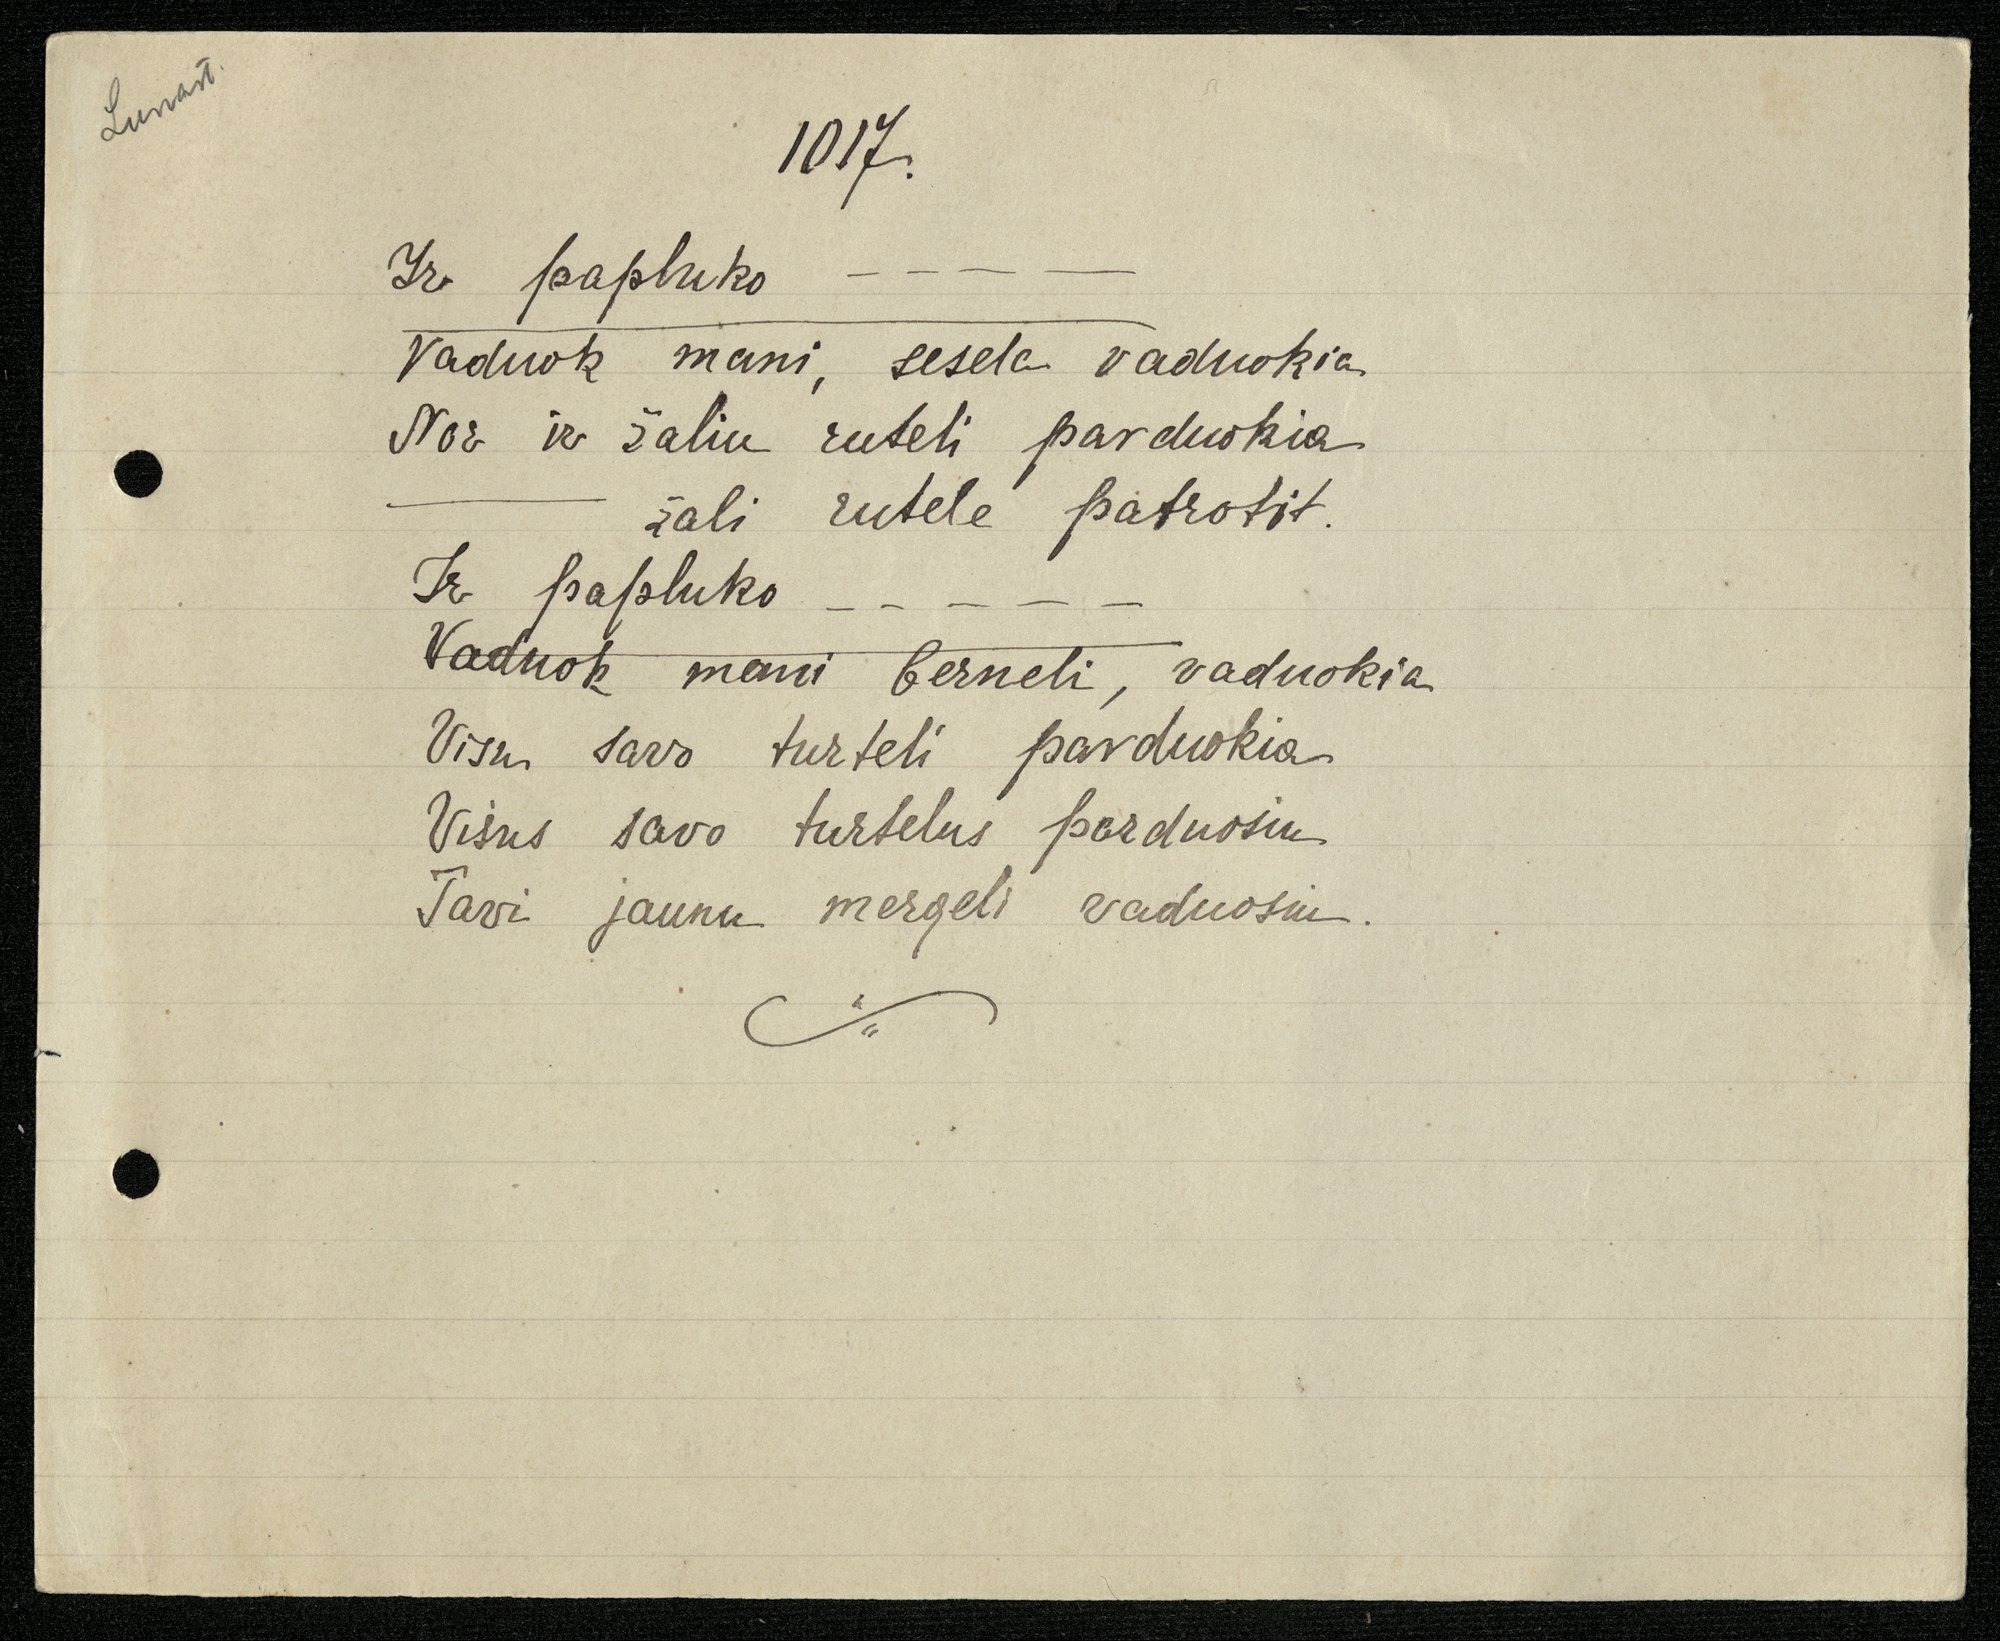 1017.
Ir papluko – – – – –
Vaduok mani, sesela vaduokia
Nor ir žaliu ruteli parduokia
——— žali rutele patrotit.
Ir papluko – – – – –
Vaduok mani berneli, vaduokia
Visu savo turteli parduokia
Visus savo turtelus parduosiu
Tavi jaunu mergeli vaduosiu.